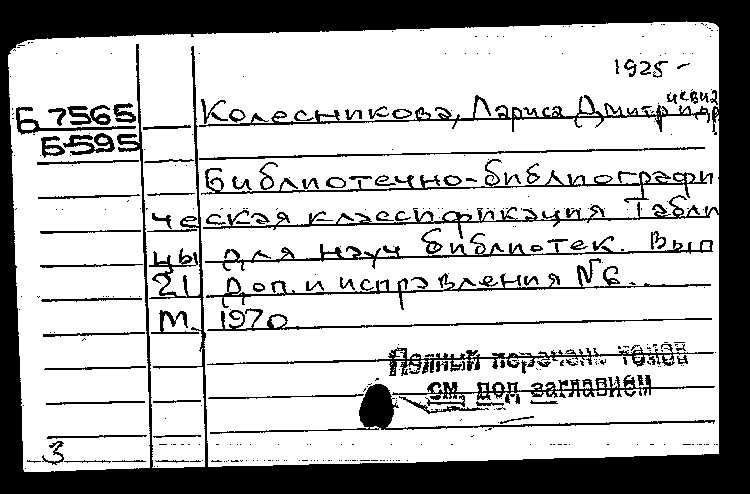 1925 -
Б 7565
Б-595
Колесникова, Лариса Дмитриевна и др
Библиотечно-библиографи
ческая классификация Табли
цы для науч библиотек. Вып
21 Доп. и исправления №6.
М. 1970
Полный перечень томов
см. под заглавием
3